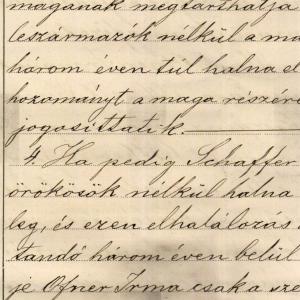 magának megtarthatja
leszármazók nélkül a ma
három éven túl halna el
hozományt a maga részére
jogosittatik.
4. Ha pedig Schaffer
örökösök nélkül halna
leg, és ezen elhalálozás
tandó három éven belül
je Ofner Irma csak a sze